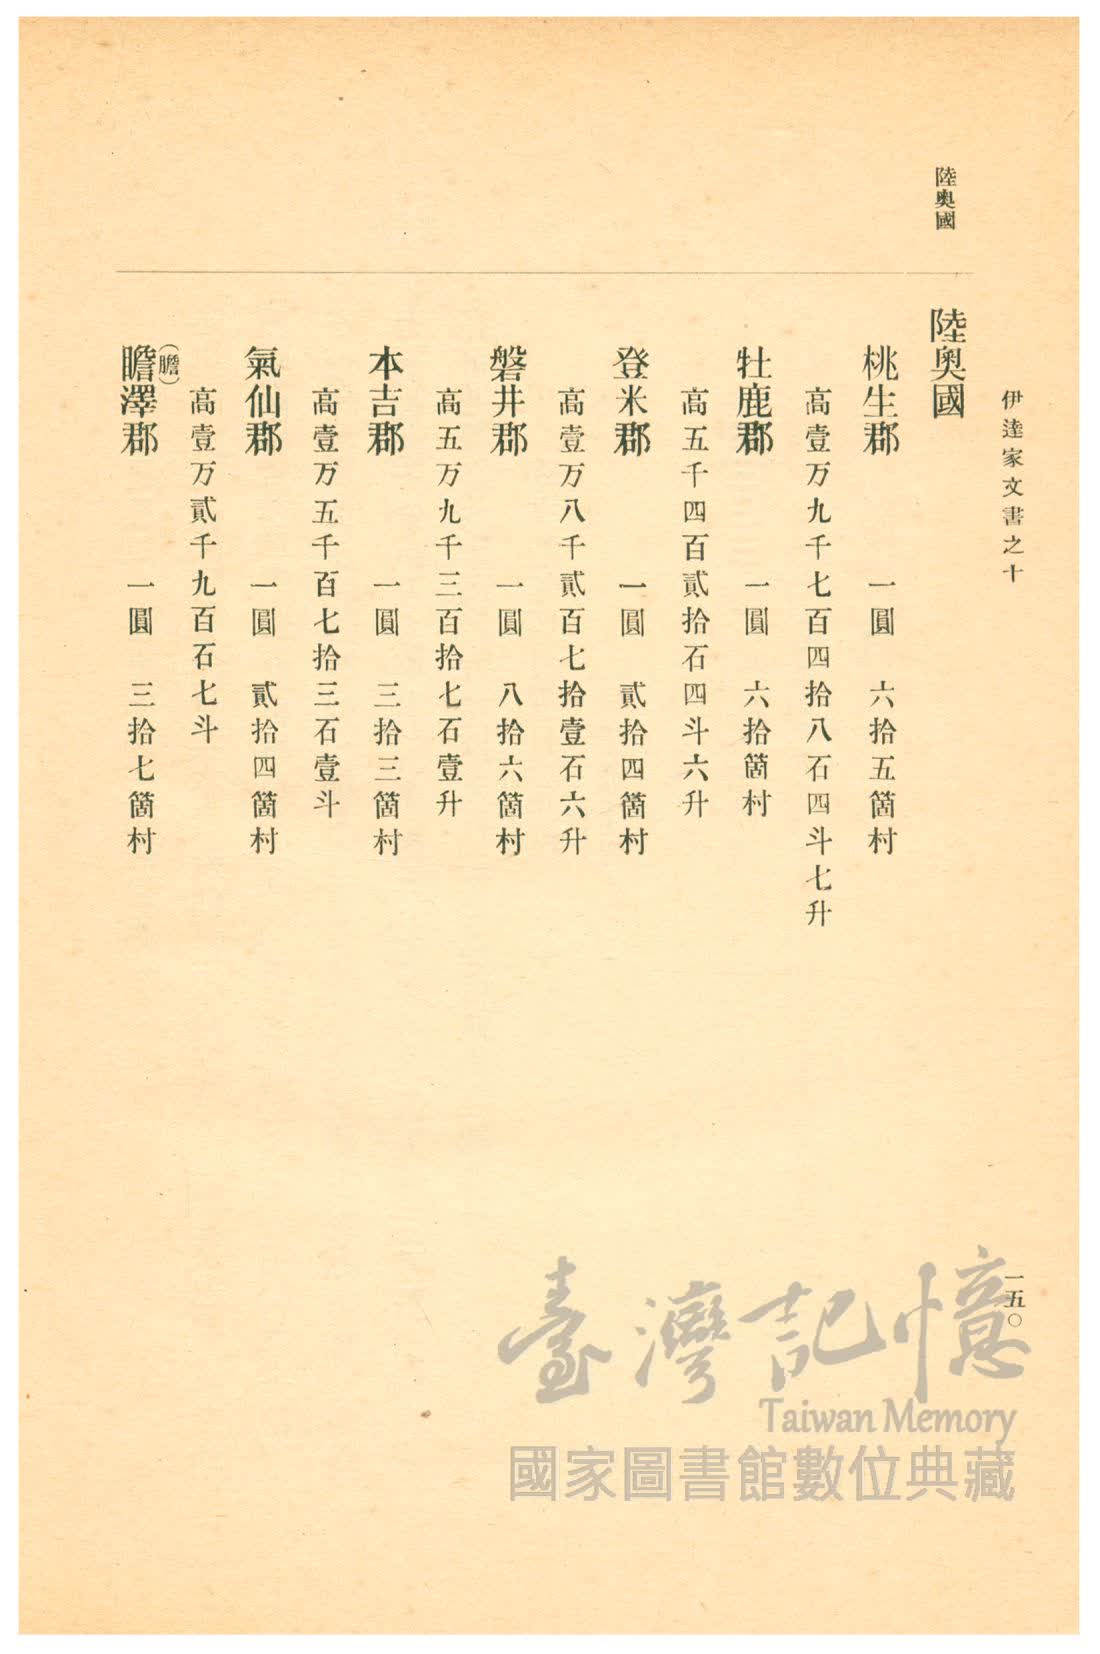 伊達家文書之十
一五〇
陸奧國
陸奧國
桃生郡　一圓　六拾五箇村
高壹万九千七百四拾八石四斗七升
牡鹿郡　一圓　六拾箇村
高五千四百貳拾石四斗六升
登米郡　一圓　貳拾四箇村
高壹万八千貳百七拾壹石六升
磐井郡　一圓　八拾六箇村
高五万九千三百拾七石壹升
本吉郡　一圓　三拾三箇村
高壹万五千百七拾三石壹斗
氣仙郡　一圓　貳拾四箇村
高壹万貳千九百石七斗
(膽)
瞻澤郡　一圓　三拾七箇村
臺灣記憶
Taiwan Memory
國家圖書館數位典藏